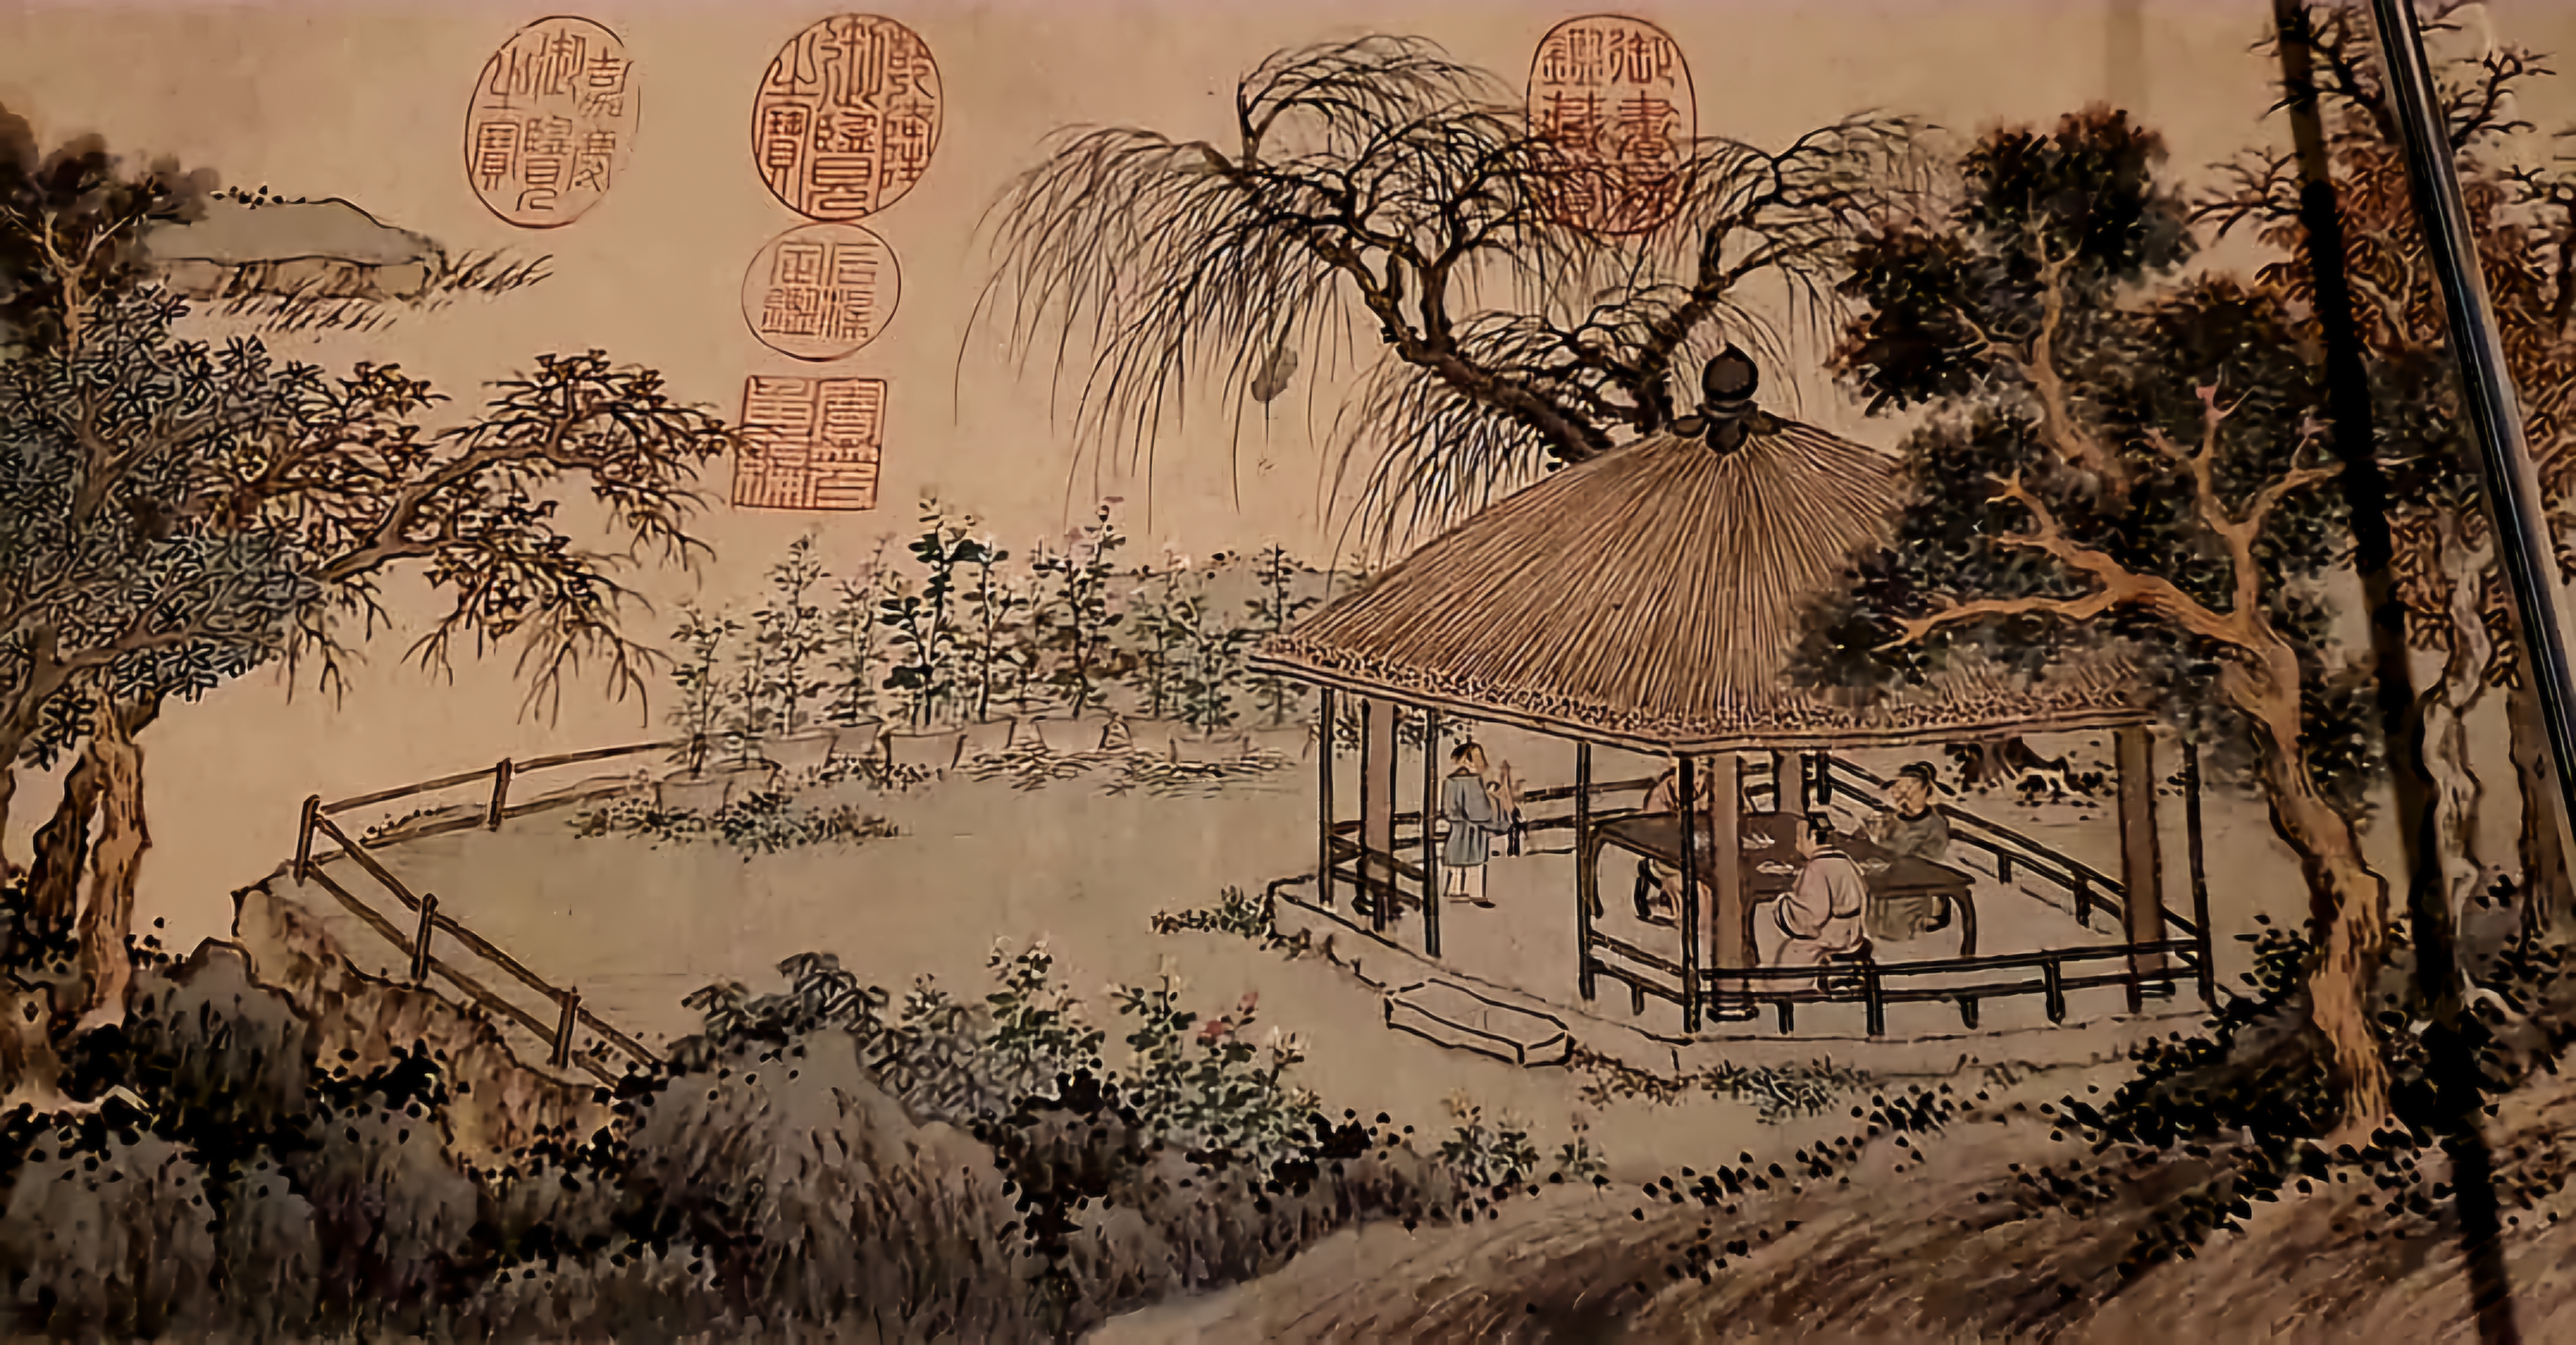 御書房鑑藏寶
乾隆御覽之寶
石渠定鑑
寶笈重編
嘉慶御覽之寶